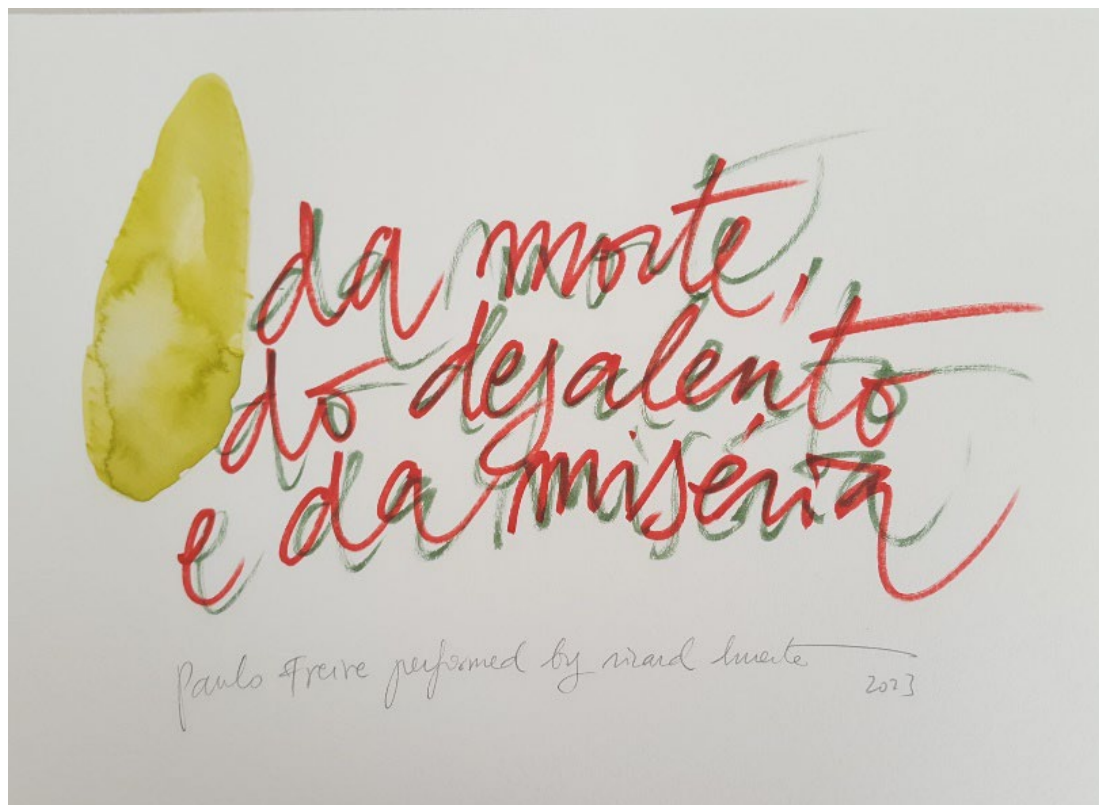 da morte,
do desalento
e da miséria
Paulo Freire performed by ricard huerta
2023